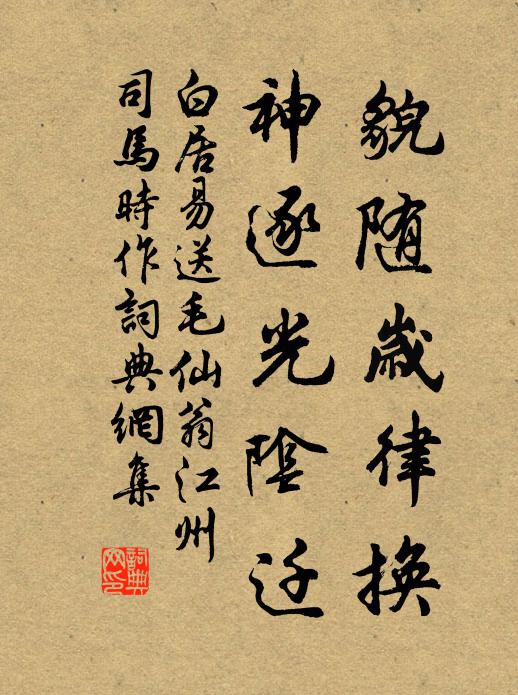 貌随歲律換
神逐光陰迁
白居易送毛仙翁江州
司馬時作詞典網集
詞典
网印